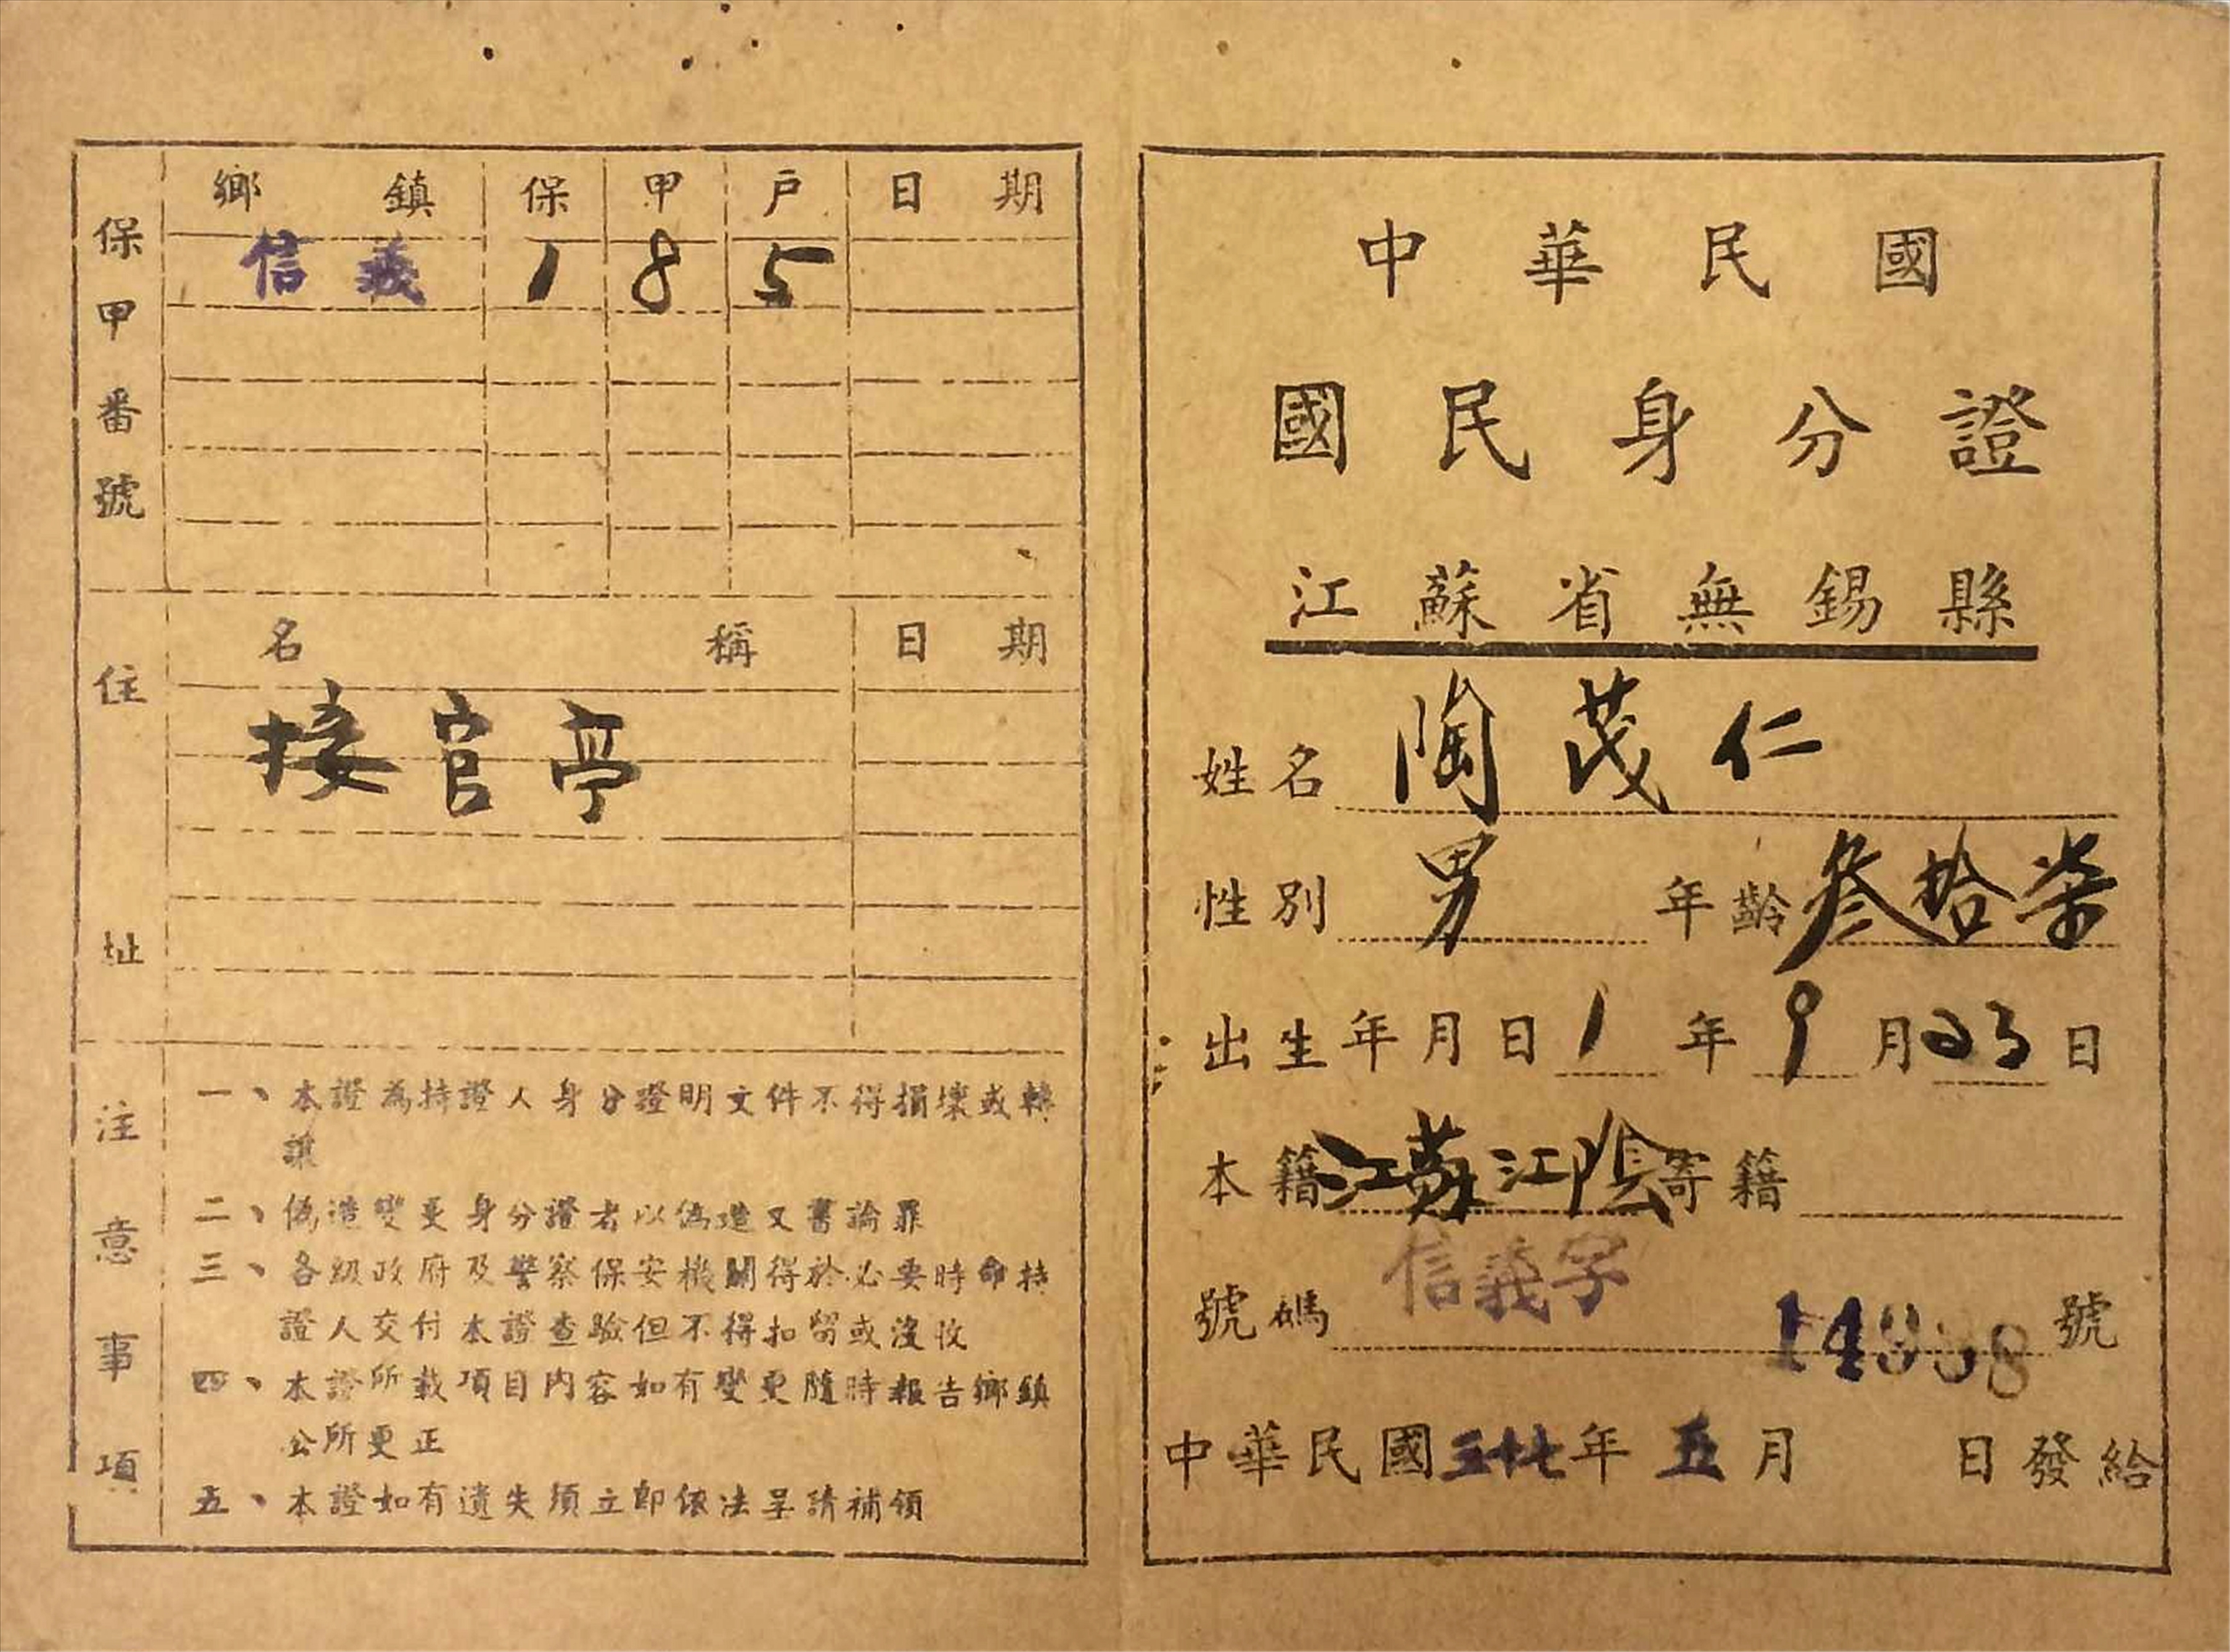 中華民國
國民身分證
江蘇省無錫縣
姓名 陶茂仁
性別 男 年齡 叄拾柒
出生年月日 1 年 9 月 23 日
本籍 江蘇江陰 寄籍
號碼 信義字 號
中華民國三十七年五月 日發給
保甲番號
鄉鎮 保 甲 戶 日期
信義 1 8 5
住址
名稱 日期
接官亭
注意事項
一、本證為持證人身分證明文件不得損壞或轉
讓
二、偽造變更身分證者以偽造文書論罪
三、各級政府及警察保安機關得於必要時命持
證人交付本證查驗但不得扣留或沒收
四、本證所載項目內容如有變更隨時報告鄉鎮
公所更正
五、本證如有遺失須立即依法呈請補領